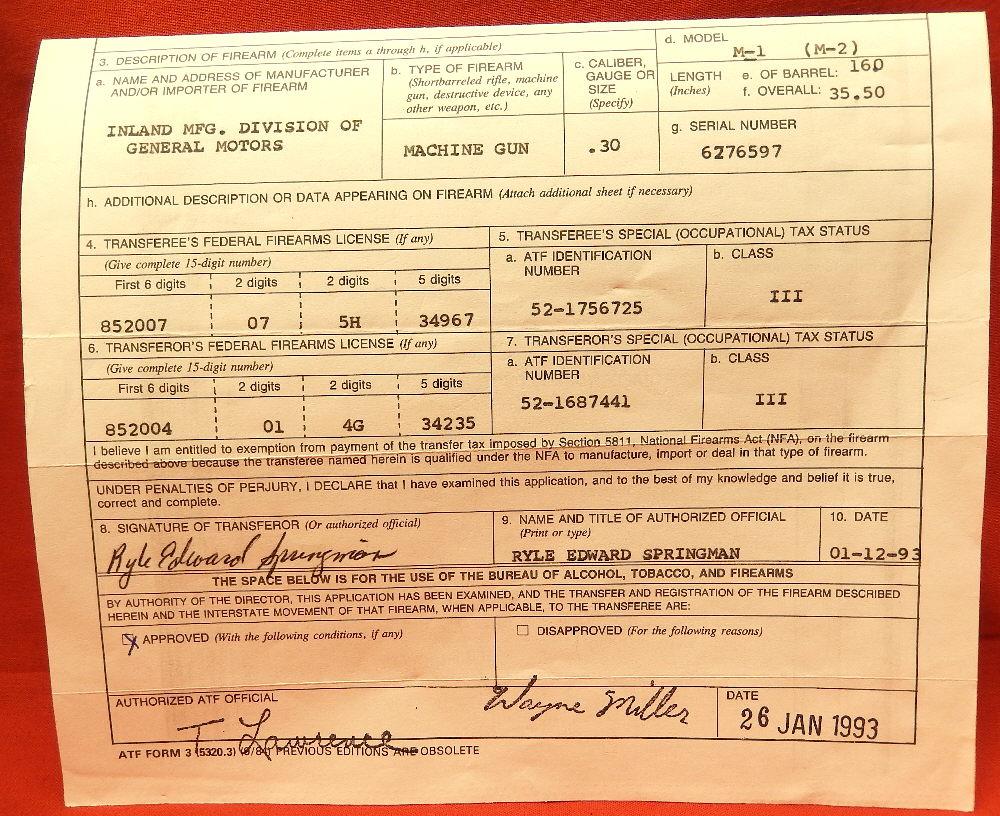 3. DESCRIPTION OF FIREARM (Complete items a through h, if applicable)
a. NAME AND ADDRESS OF MANUFACTURER
AND/OR IMPORTER OF FIREARM
INLAND MFG. DIVISION OF
GENERAL MOTORS
b. TYPE OF FIREARM
(Shortbarreled rifle, machine
gun, destructive device, any
other weapon, etc.)
MACHINE GUN
c. CALIBER,
GAUGE OR
SIZE
(Specify)
.30
d. MODEL
M-1 (M-2)
LENGTH
(Inches)
e. OF BARREL: 160
f. OVERALL: 35.50
g. SERIAL NUMBER
6276597
h. ADDITIONAL DESCRIPTION OR DATA APPEARING ON FIREARM (Attach additional sheet if necessary)
4. TRANSFEREE'S FEDERAL FIREARMS LICENSE (If any)
(Give complete 15-digit number)
First 6 digits 2 digits 2 digits 5 digits
852007 07 5H 34967
5. TRANSFEREE'S SPECIAL (OCCUPATIONAL) TAX STATUS
a. ATF IDENTIFICATION
NUMBER
52-1756725
b. CLASS
III
6. TRANSFEROR'S FEDERAL FIREARMS LICENSE (If any)
(Give complete 15-digit number)
First 6 digits 2 digits 2 digits 5 digits
852004 01 4G 34235
7. TRANSFEROR'S SPECIAL (OCCUPATIONAL) TAX STATUS
a. ATF IDENTIFICATION
NUMBER
52-1687441
b. CLASS
III
I believe I am entitled to exemption from payment of the transfer tax imposed by Section 5811, National Firearms Act (NFA), on the firearm
described above because the transferee named herein is qualified under the NFA to manufacture, import or deal in that type of firearm.
UNDER PENALTIES OF PERJURY, I DECLARE that I have examined this application, and to the best of my knowledge and belief it is true,
correct and complete.
8. SIGNATURE OF TRANSFEROR (Or authorized official)
Ryle Edward Springman
9. NAME AND TITLE OF AUTHORIZED OFFICIAL
(Print or type)
RYLE EDWARD SPRINGMAN
10. DATE
01-12-93
THE SPACE BELOW IS FOR THE USE OF THE BUREAU OF ALCOHOL, TOBACCO, AND FIREARMS
BY AUTHORITY OF THE DIRECTOR, THIS APPLICATION HAS BEEN EXAMINED, AND THE TRANSFER AND REGISTRATION OF THE FIREARM DESCRIBED
HEREIN AND THE INTERSTATE MOVEMENT OF THAT FIREARM, WHEN APPLICABLE, TO THE TRANSFEREE ARE:
APPROVED (With the following conditions, if any)
DISAPPROVED (For the following reasons)
AUTHORIZED ATF OFFICIAL
T Lawrence
Wayne Miller
DATE
26 JAN 1993
ATF FORM 3 (5320.3) (6/84) PREVIOUS EDITIONS ARE OBSOLETE